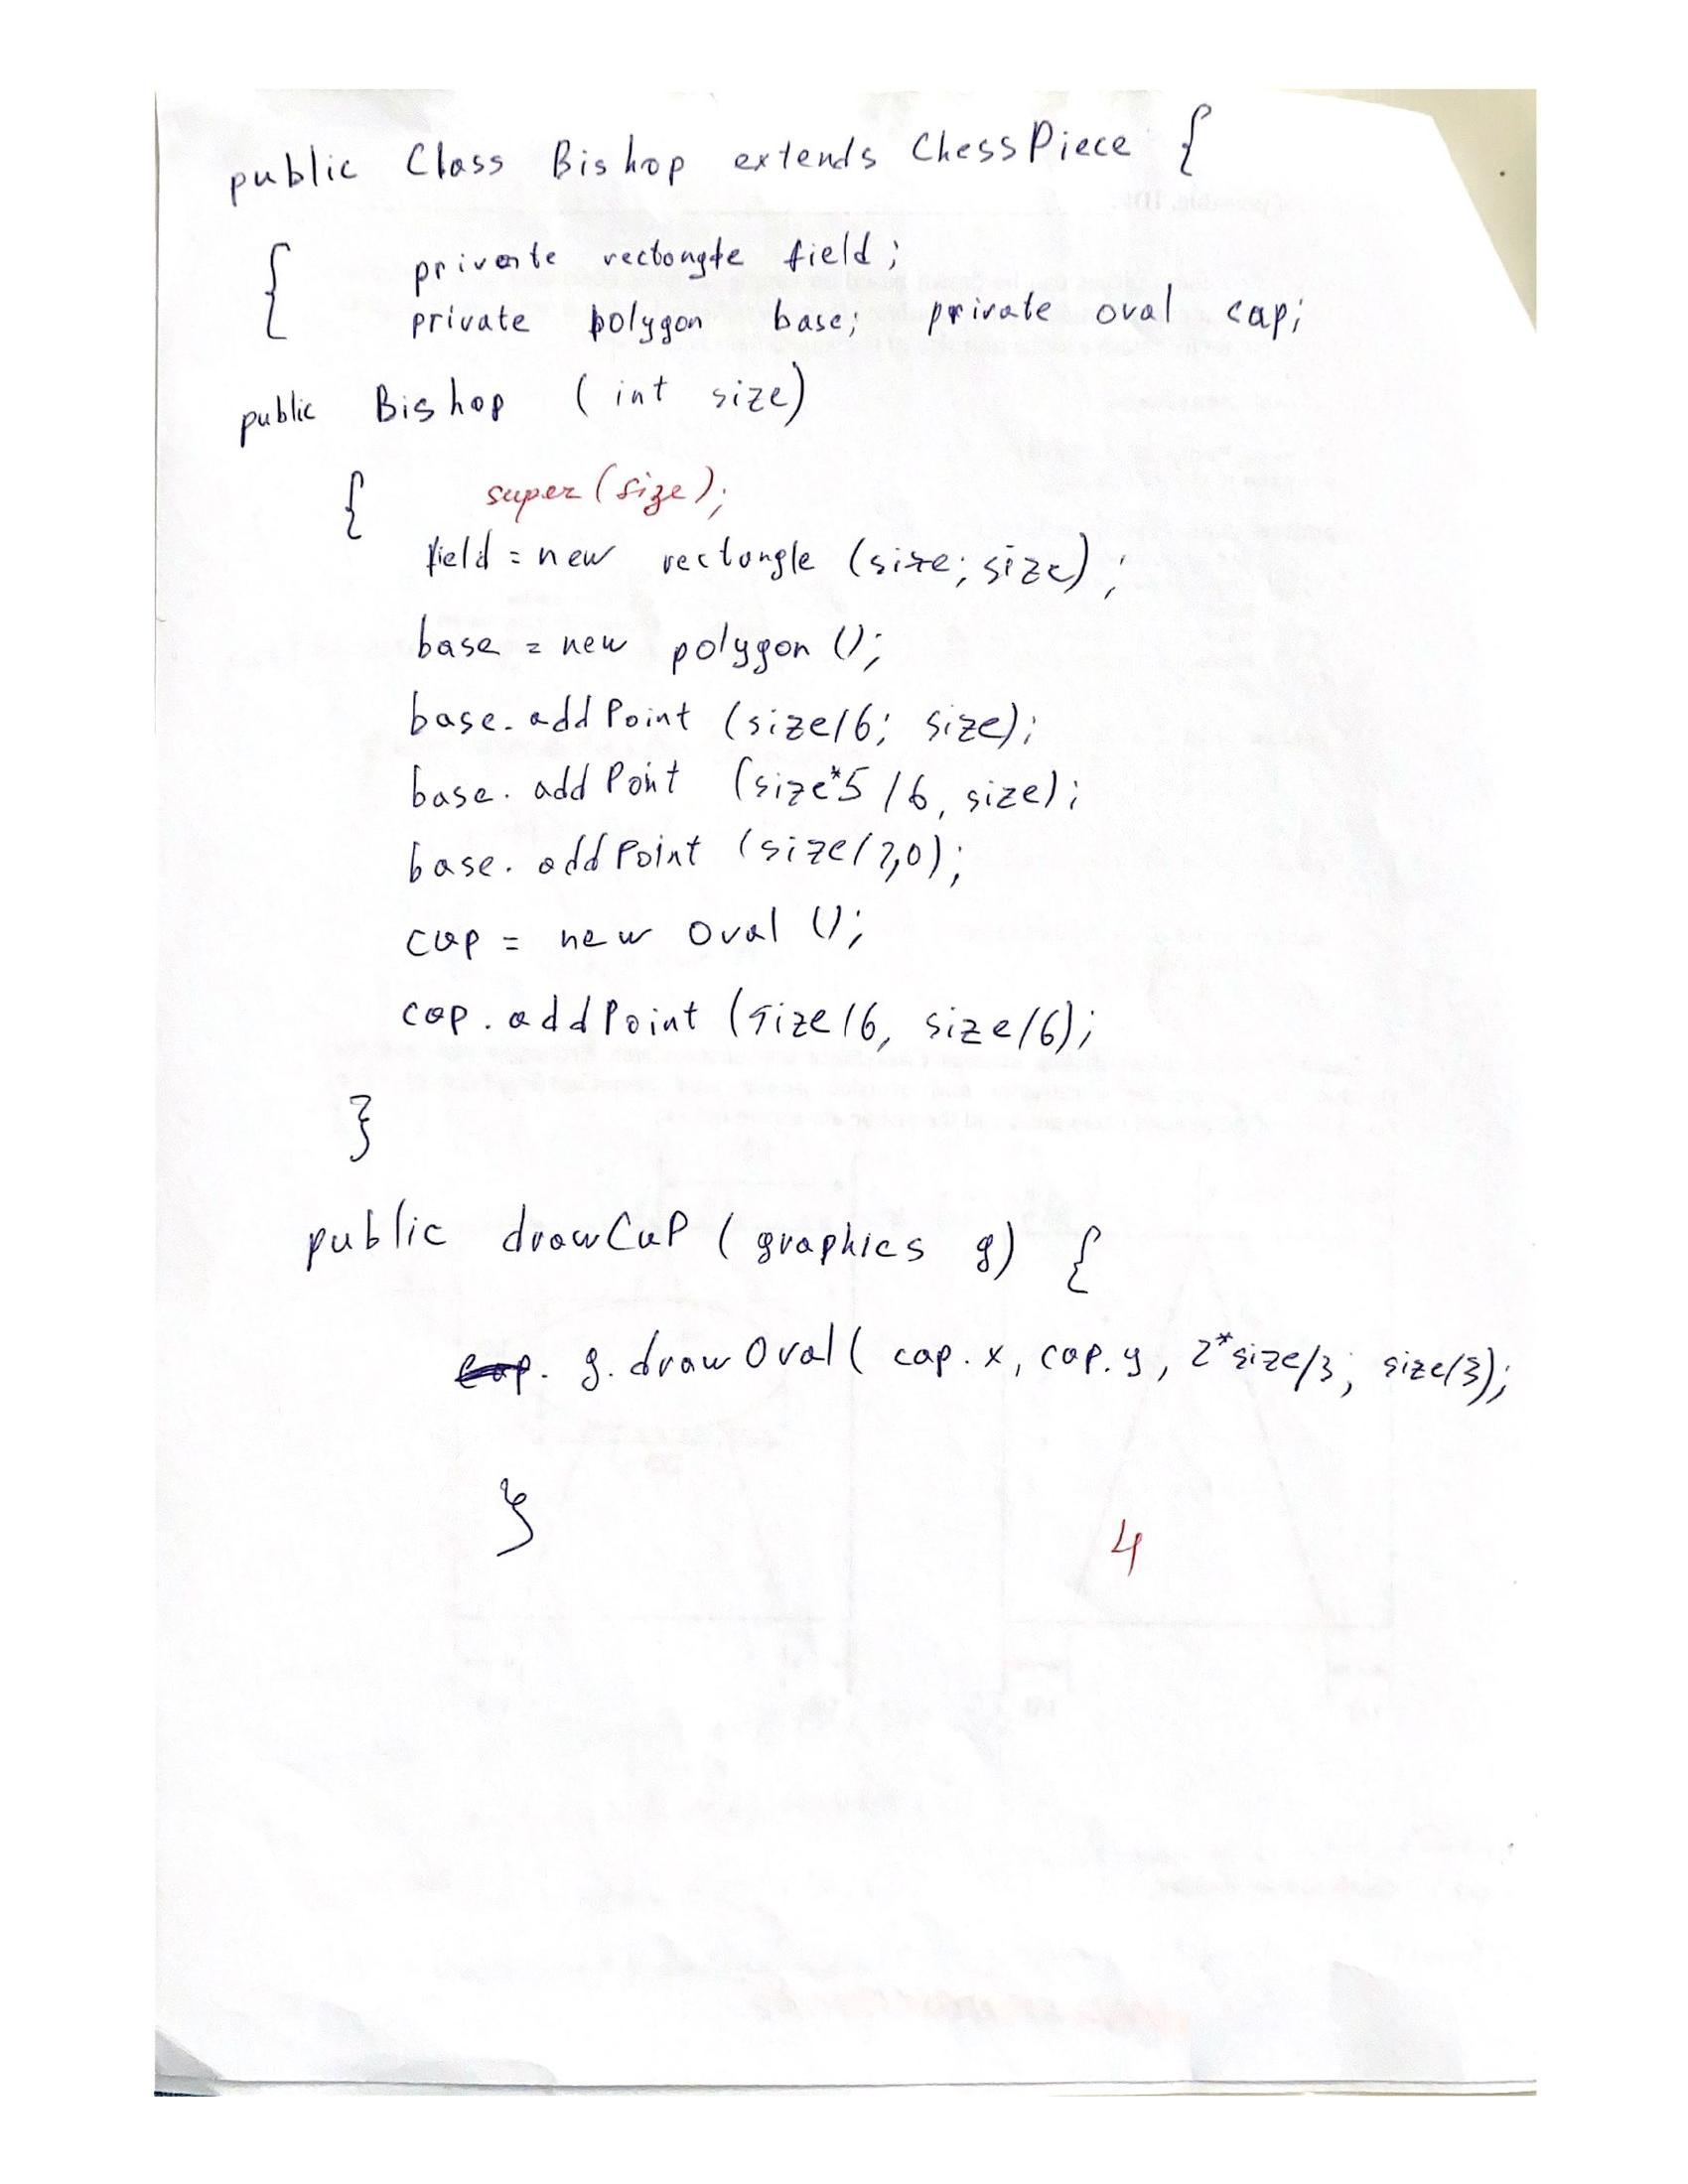 public Class Bishop extends ChessPiece {
{ private rectangle field;
private polygon base; private oval cap;
public Bishop (int size)
{ super(size);
field = new rectangle (size; size);
base = new polygon ();
base.addPoint (size/6; size);
base.addPoint (size*5/6, size);
base.addPoint (size/2,0);
cap = new Oval ();
cap.addPoint (size/6, size/6);
}
public drawCaP (graphics g) {
g.drawOval( cap.x, cap.y, 2*size/3, size/3);
}
4